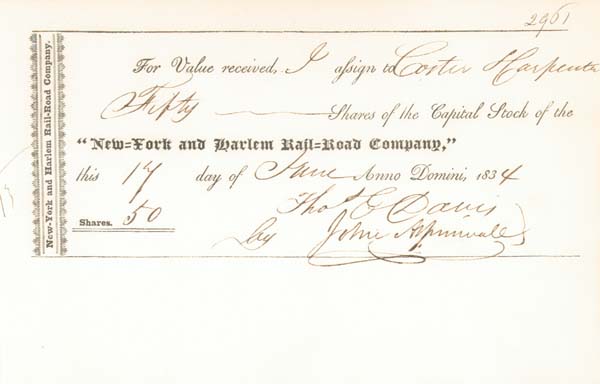 2961
New-York and Harlem Rail-Road Company.
For Value received, I assign to Coster & Carpenter
Fifty Shares of the Capital Stock of the
"New-York and Harlem Rail-Road Company,"
this 17 day of June Anno Domini, 1834
Thos E Davis
Shares. 50
by John Aspinwall